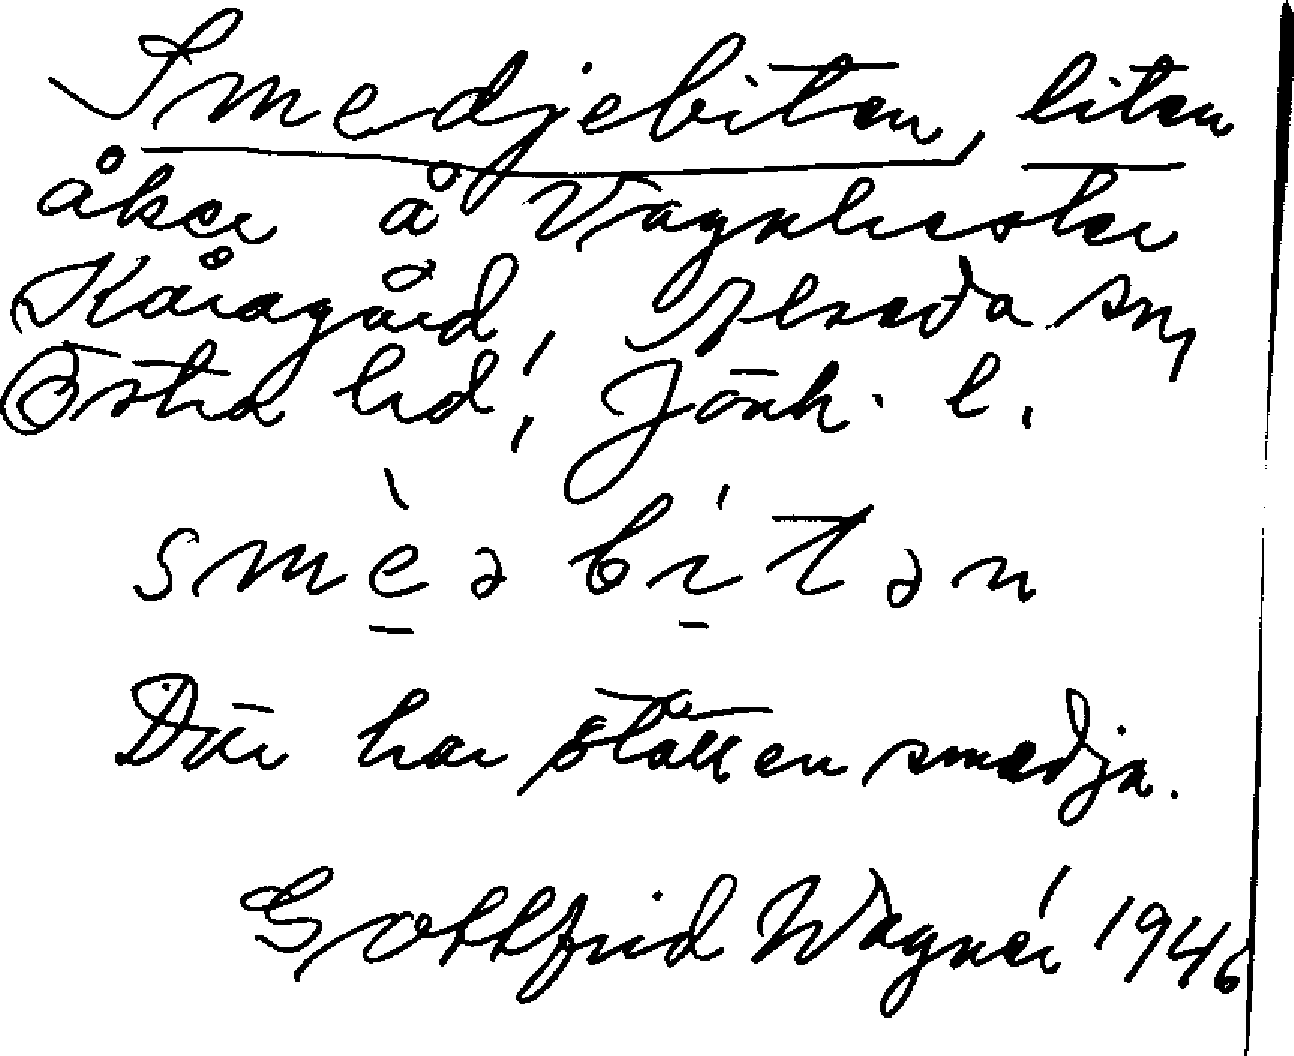 Smedjebiten, liten
åker å Vagnhester
Kåragård, Alseda sn,
Östra hd, Jönk. l.
smèəbítən
Där har stått en smedja.
Gottfrid Wagnér 1946